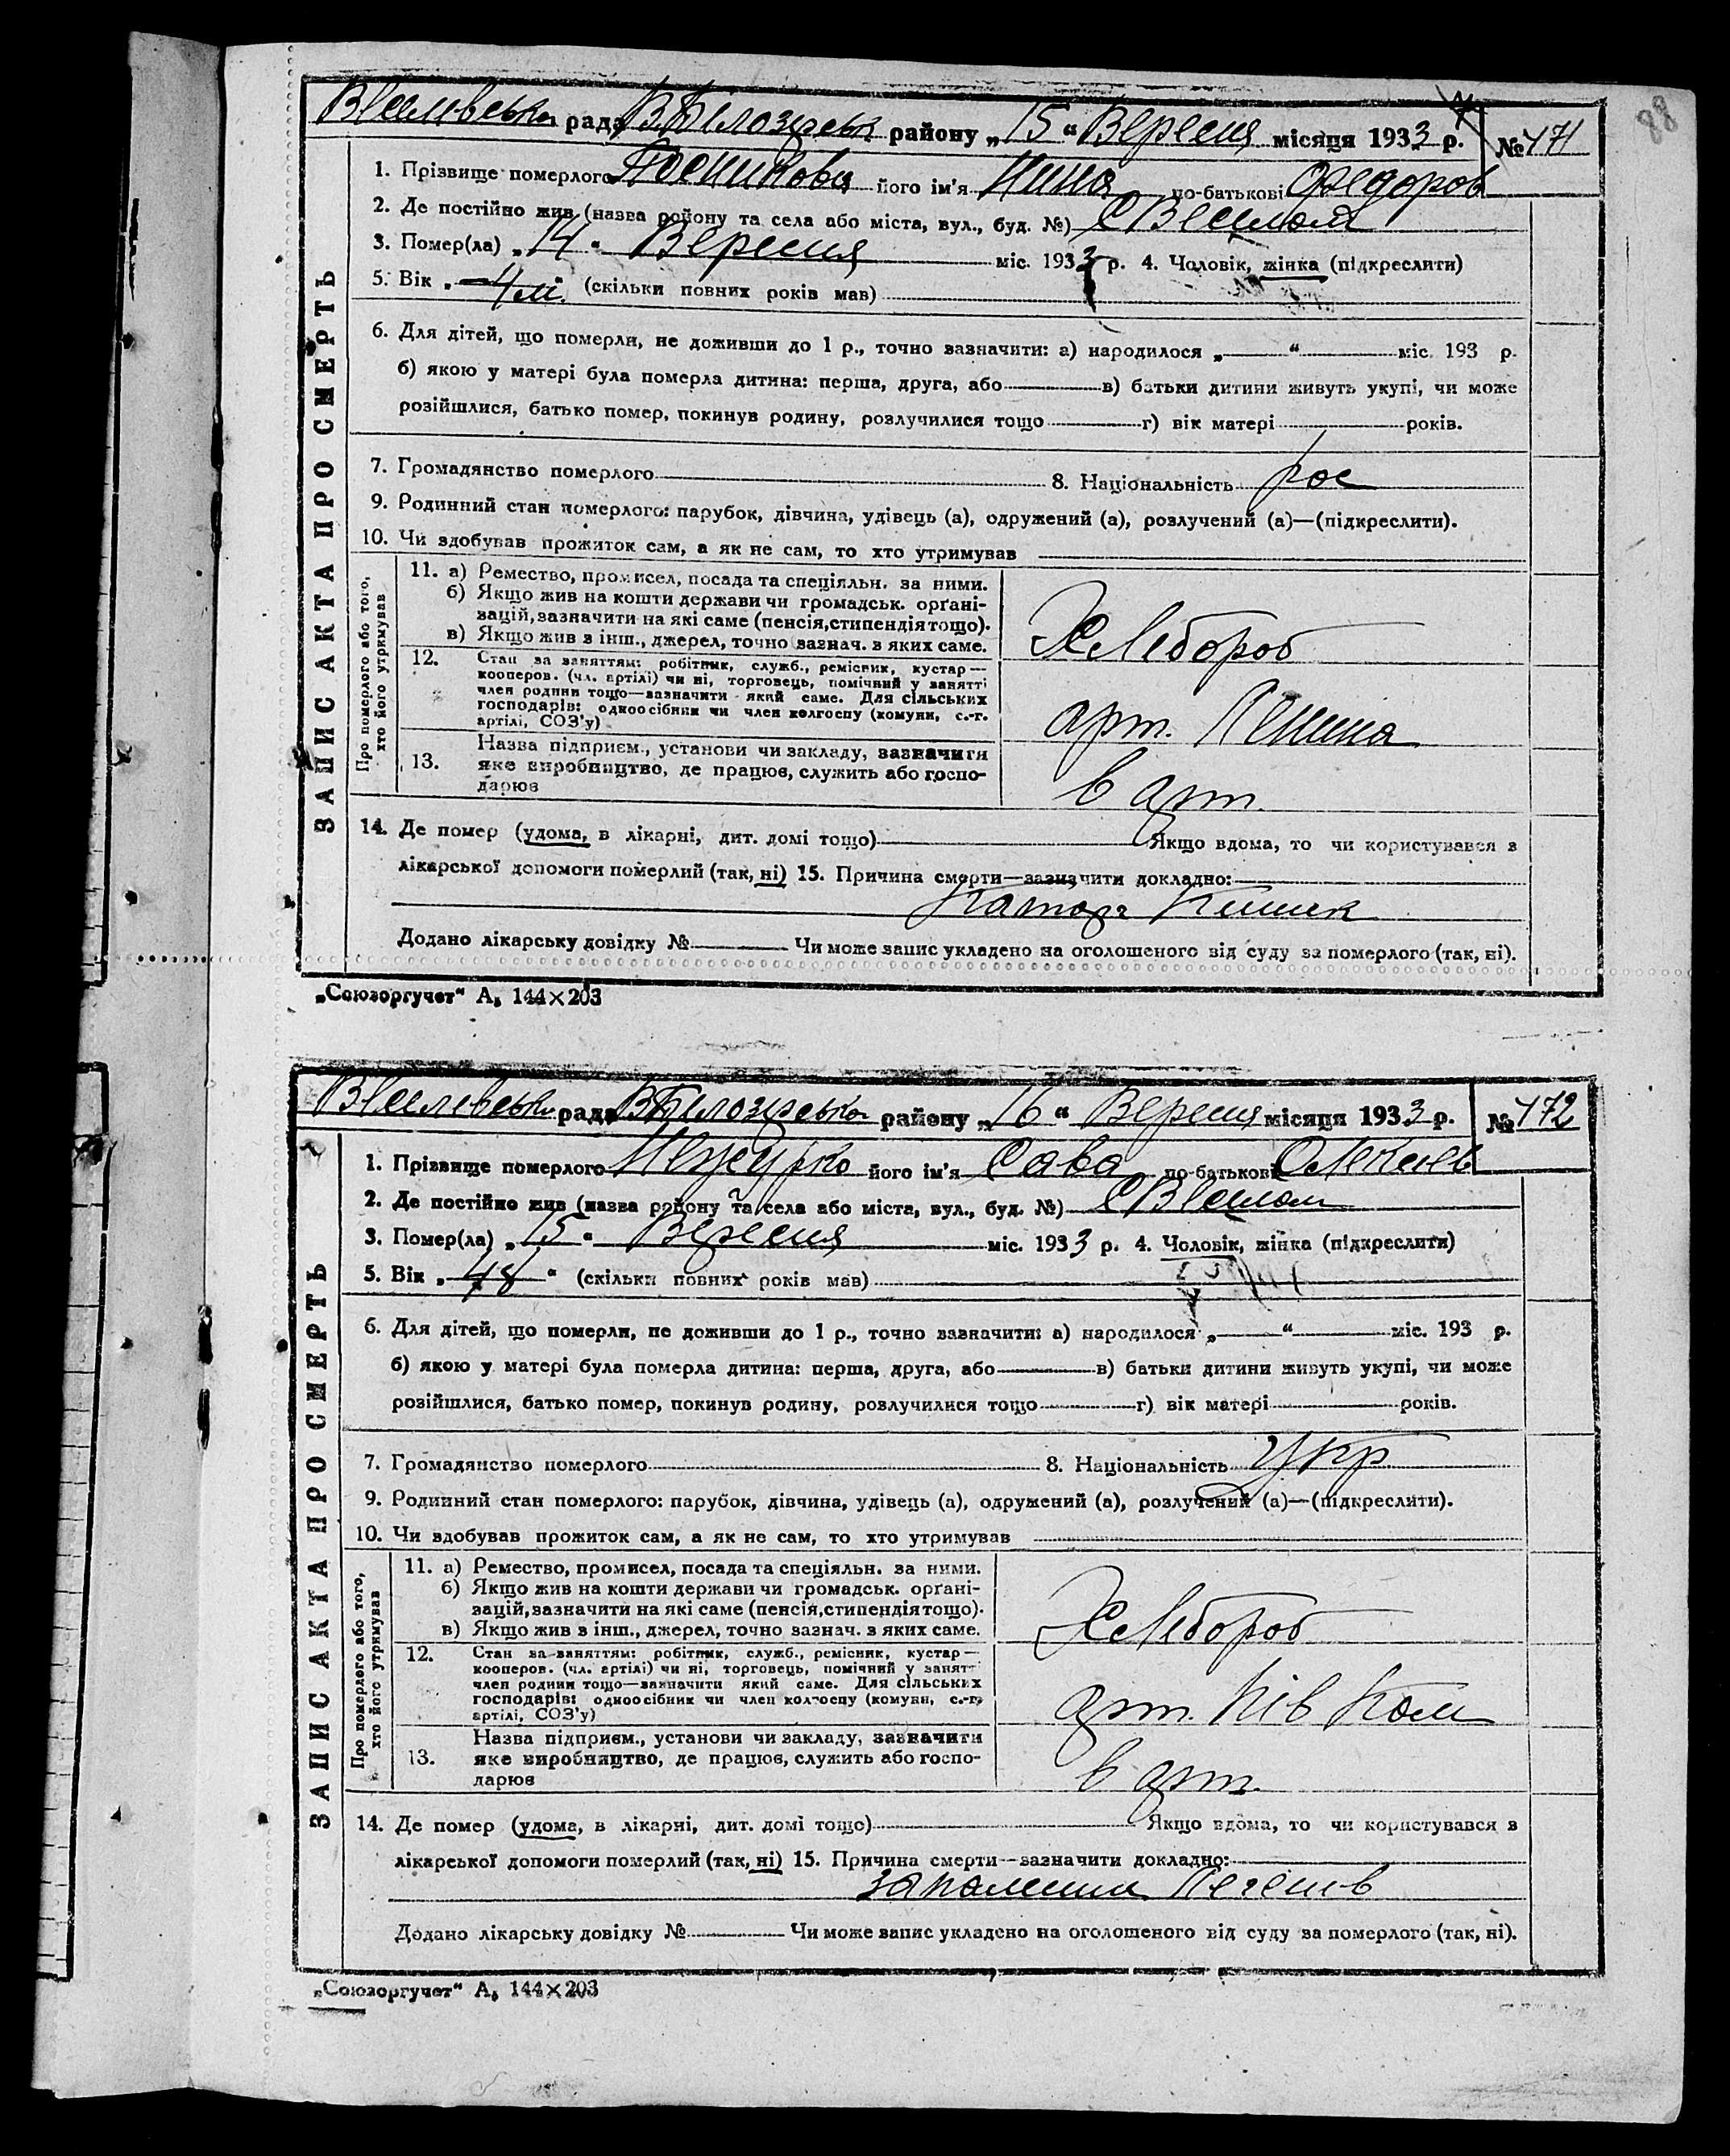 88
рада В Білозірськ району „15“ Вересня місяця 1933 р. № 471
1. Прізвище померлого його ім'я Нина по-батькові Федоров
2. Де постійно жив (назва району та села або міста, вул., буд. №) С
3. Помер(ла) „14“ Вересня міс. 1933 р. 4. Чоловік, жінка (підкреслити)
5. Вік „4 м.“ (скільки повних років мав)
6. Для дітей, що померли, не доживши до 1 р., точно зазначити: а) народилося „ “ міс. 193 р.
б) якою у матері була померла дитина: перша, друга, або в) батьки дитини живуть укупі, чи може
розійшлися, батько помер, покинув родину, розлучилися тощо г) вік матері років.
7. Громадянство померлого 8. Національність рос
9. Родинний стан померлого: парубок, дівчина, удівець (а), одружений (а), розлучений (а)—(підкреслити).
10. Чи здобував прожиток сам, а як не сам, то хто утримував
ЗАПИС АКТА ПРО СМЕРТЬ
Про померлого або того,
хто його утримував
11. а) Ремество, промисел, посада та спеціяльн. за ними.
б) Якщо жив на кошти держави чи громадськ. орґані-
зацій, зазначити на які саме (пенсія, стипендія тощо).
в) Якщо жив з інш., джерел, точно зазнач. з яких саме.
Хлебороб
12. Стан за заняттям: робітник, служб., ремісник, кустар—
кооперов. (чл. артілі) чи ні, торговець, помічний у занятті
член родини тощо—зазначити який саме. Для сільських
господарів: одноосібник чи член колгоспу (комуни, с.-г.
артілі, СОЗ'у)
арт. Ленина
13. Назва підприєм., установи чи закладу, зазначити
яке виробництво, де працює, служить або госпо-
дарює
в арт.
14. Де помер (удома, в лікарні, дит. домі тощо) Якщо вдома, то чи користувався з
лікарської допомоги померлий (так, ні) 15. Причина смерти—зазначити докладно:
Катар Кишек
Додано лікарську довідку № Чи може запис укладено на оголошеного від суду за померлого (так, ні).
„Союзоргучет“ А, 144×203
рада В Білозірська району „16“ Вересня місяця 1933 р. № 472
1. Прізвище померлого його ім'я Сава по-батькові
2. Де постійно жив (назва району та села або міста, вул., буд. №) С
3. Помер(ла) „15“ Вересня міс. 1933 р. 4. Чоловік, жінка (підкреслити)
5. Вік „48“ (скільки повних років мав)
6. Для дітей, що померли, не доживши до 1 р., точно зазначити: а) народилося „ “ міс. 193 р.
б) якою у матері була померла дитина: перша, друга, або в) батьки дитини живуть укупі, чи може
розійшлися, батько помер, покинув родину, розлучилися тощо г) вік матері років.
7. Громадянство померлого 8. Національність Укр
9. Родинний стан померлого: парубок, дівчина, удівець (а), одружений (а), розлучений (а)—(підкреслити).
10. Чи здобував прожиток сам, а як не сам, то хто утримував
ЗАПИС АКТА ПРО СМЕРТЬ
Про померлого або того,
хто його утримував
11. а) Ремество, промисел, посада та спеціяльн. за ними.
б) Якщо жив на кошти держави чи громадськ. орґані-
зацій, зазначити на які саме (пенсія, стипендія тощо).
в) Якщо жив з інш., джерел, точно зазнач. з яких саме.
Хлебороб
12. Стан за заняттям: робітник, служб., ремісник, кустар—
кооперов. (чл. артілі) чи ні, торговець, помічний у занятт
член родини тощо—зазначити який саме. Для сільських
господарів: одноосібник чи член колгоспу (комуни, с.-г.
артілі, СОЗ'у)
арт. Ком
13. Назва підприєм., установи чи закладу, зазначити
яке виробництво, де працює, служить або госпо-
дарює
в арт.
14. Де помер (удома, в лікарні, дит. домі тощо) Якщо вдома, то чи користувався з
лікарської допомоги померлий (так, ні) 15. Причина смерти—зазначити докладно:
запалення
Додано лікарську довідку № Чи може запис укладено на оголошеного від суду за померлого (так, ні).
„Союзоргучет“ А, 144×203